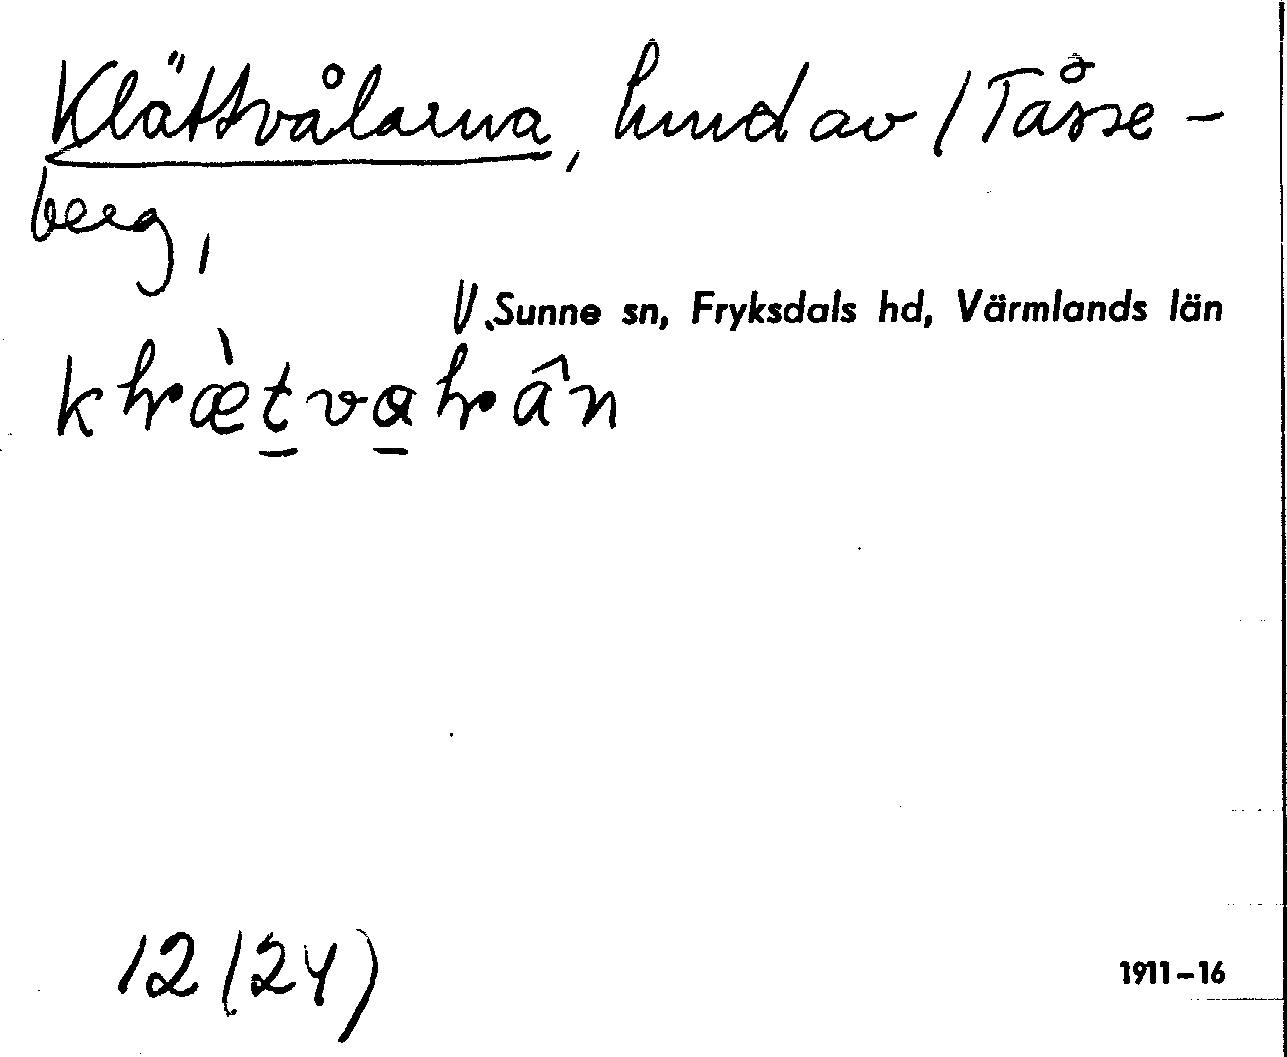 Klättvålarna, hmd av / Tåsse-
berg,
V. Sunne sn, Fryksdals hd, Värmlands län
12 (24)
1911-16